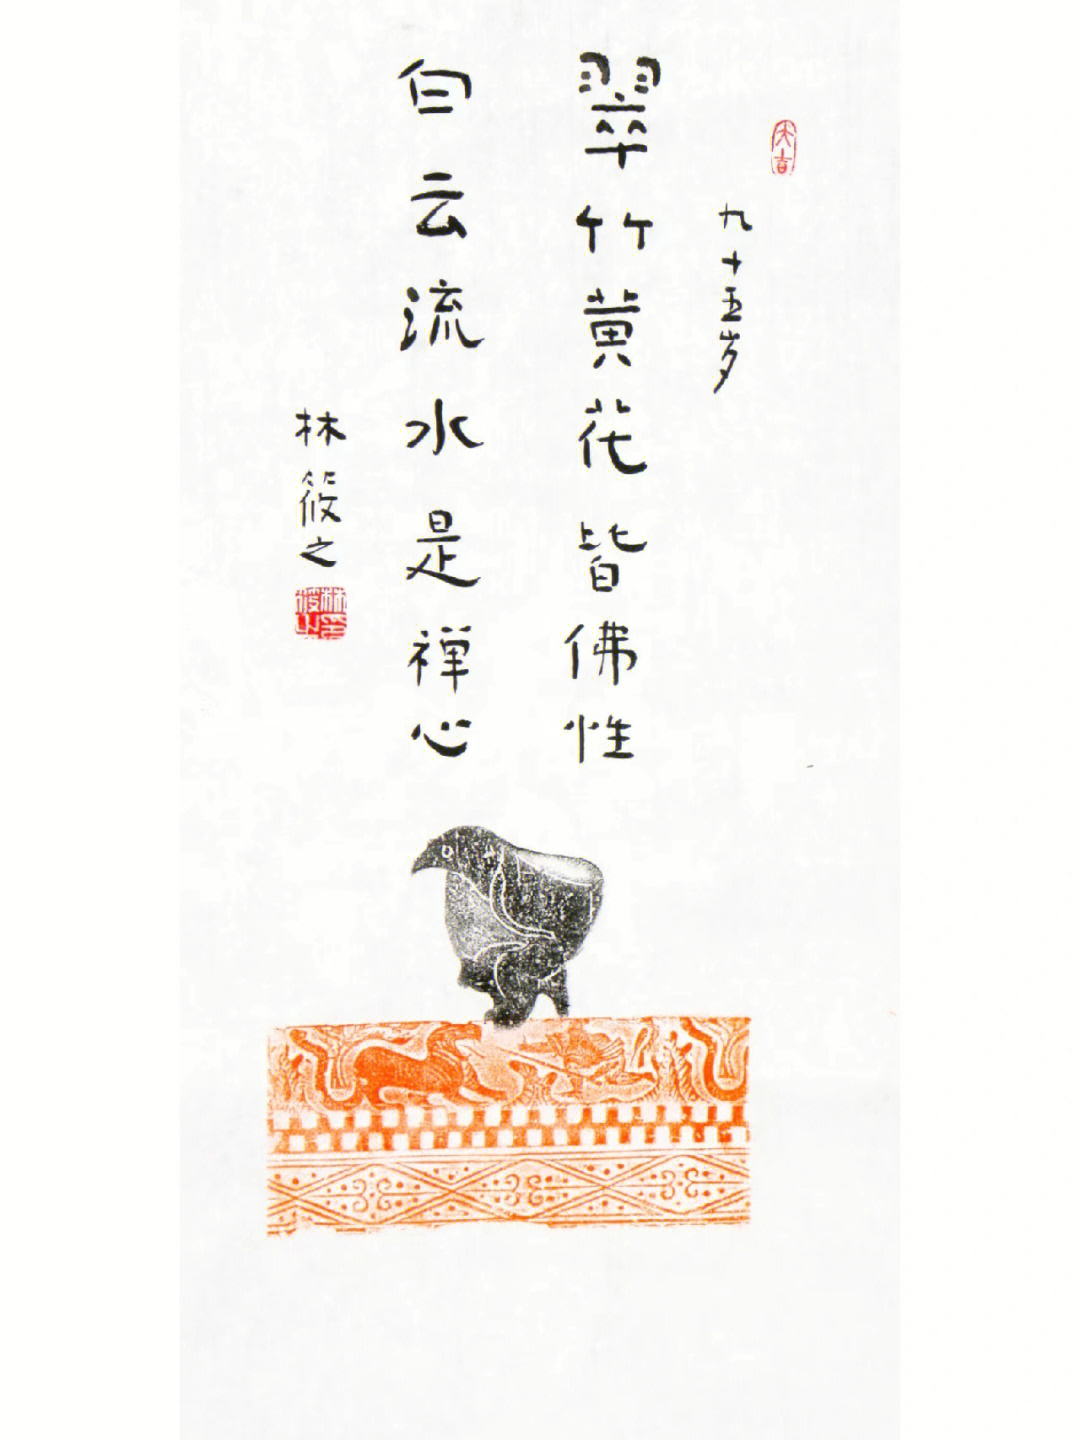 大吉
九十五岁
翠竹黄花皆佛性
白云流水是禅心
林筱之
林筱之印